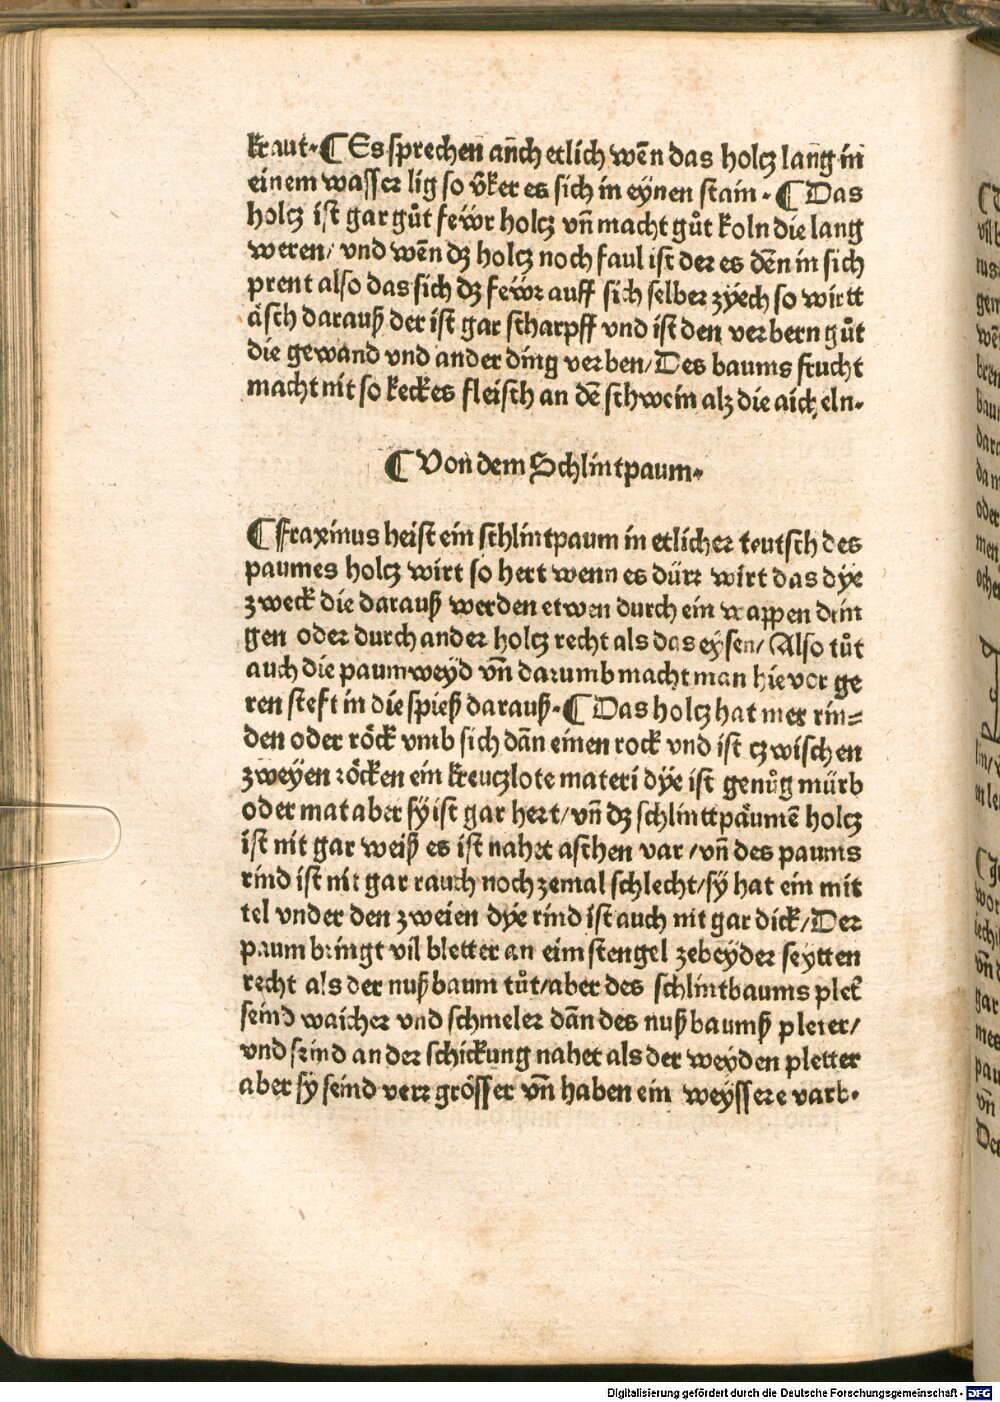 kraut. ¶ Es sprechen anch etlich wēn das holcz lang in
einem wasser lig so v̄ker es sich in eynen stain. ¶ Das
holcz ist gar gůt fewr holcz vn̄ macht gůt koln die lang
weren/ vnd wēn dz holcz noch faul ist der es dēn in sich
prent also das sich dz fewr auff sich selber zyech so wirtt
äsch darauß der ist gar scharpff vnd ist den verbern gůt
die gewand vnd ander ding verben/ Des baums frucht
macht nit so keckes fleisch an dē schwein alz die aicheln.
¶ Von dem Schlintpaum.
¶ Fraxinus heist ein schlintpaum in etlicher teutsch des
paumes holcz wirt so hert wenn es dürr wirt das dÿe
zweck die darauß werden etwen durch ein wappen drin
gen oder durch ander holcz recht als das eysen/ Also tůt
auch die paumweyd vn̄ darumb macht man hie vor ge
ren steft in die spieß darauß. ¶ Das holcz hat mer rin⸗
den oder röck vmb sich dān einen rock vnd ist czwischen
zweyen röcken ein kreuczlote materi dÿe ist genůg mürb
oder mat aber sÿ ist gar hert/ vn̄ dz schlinttpäumē holcz
ist nit gar weiß es ist nahet aschen var/ vn̄ des paums
rind ist nit gar rauch noch zemal schlecht/ sÿ hat ein mit
tel vnder den zweien dÿe rind ist auch nit gar dick/ Der
paum bringt vil bletter an eim stengel zebeyder seytten
recht als der nußbaum tůt/ aber des schlintbaums plet̄
seind waicher vnd schmeler dān des nußbaumß pleter/
vnd seind an der schickung nahet als der weyden pletter
aber sÿ seind verr grösser vn̄ haben ein weyssere varb.
Digitalisierung gefördert durch die Deutsche Forschungsgemeinschaft - DFG